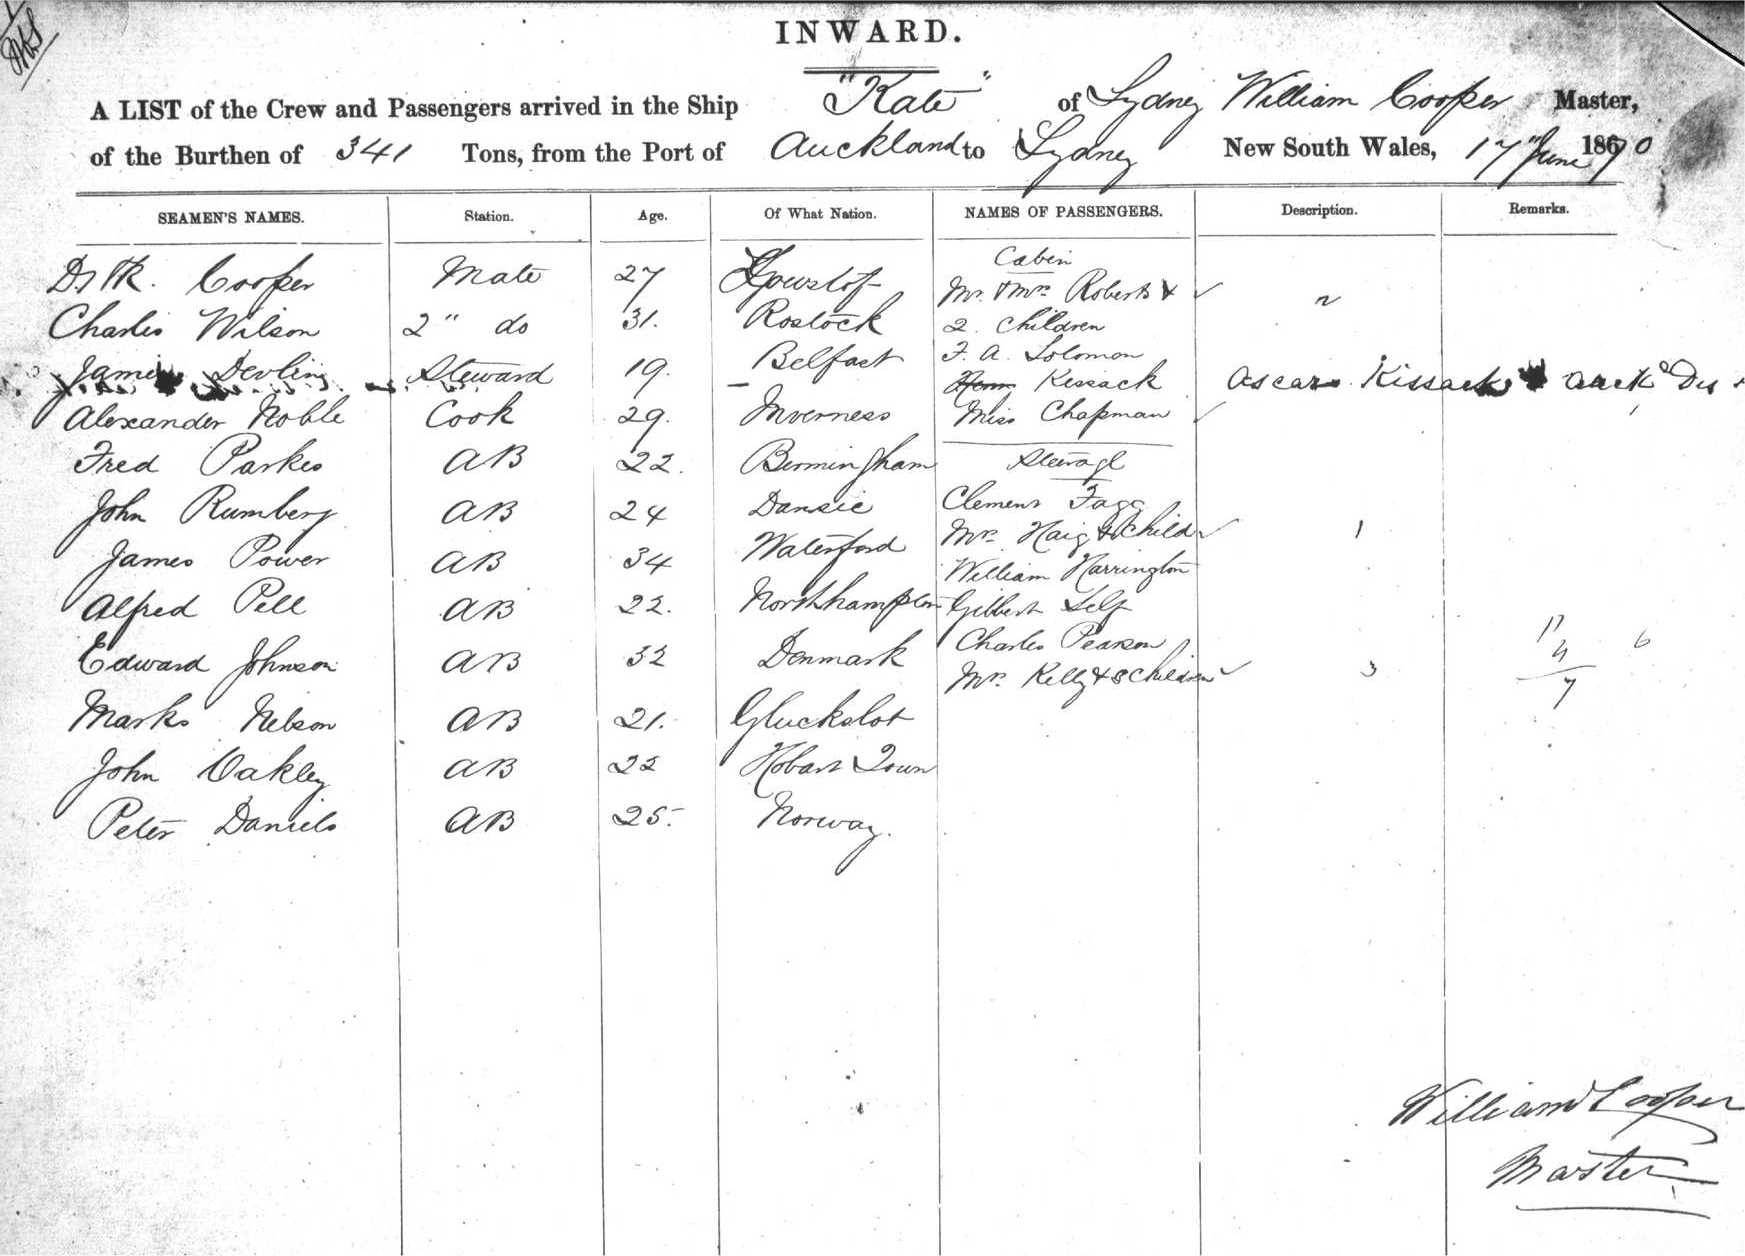 INWARD.
A LIST of the Crew and Passengers arrived in the Ship "Kate" of Sydney William Cooper Master,
of the Burthen of 341 Tons, from the Port of Auckland to Sydney New South Wales, 17" June 1870
SEAMEN'S NAMES. Station. Age. Of What Nation. NAMES OF PASSENGERS. Description. Remarks.
Cabin
Cooper Mate 27 Mr. & Mrs Roberts &
Charles Wilson 2" do 31. Rostock 2. Children
F. A. Solomon
James Devlin Steward 19. Belfast Kissack Oscar Kissack
Alexander Noble Cook 29. Inverness Miss Chapman
Fred Parkes AB 22. Birmingham Steerage
John Rumberg AB 24 Dansic Clement Fagg
Mrs. Haig & Child 1
James Power AB 34 Waterford William Harrington
Alfred Pell AB 22. Northhampton Gilbert Self
Charles Pearson
Edward Johnson AB 32 Denmark Mrs. Kelly & 3 Children 3
6
7
Marks Nelson AB 21. Gluckslot
John Oakley AB 22 Hobart Town
Peter Daniels AB 25. Norway.
William Cooper
Master